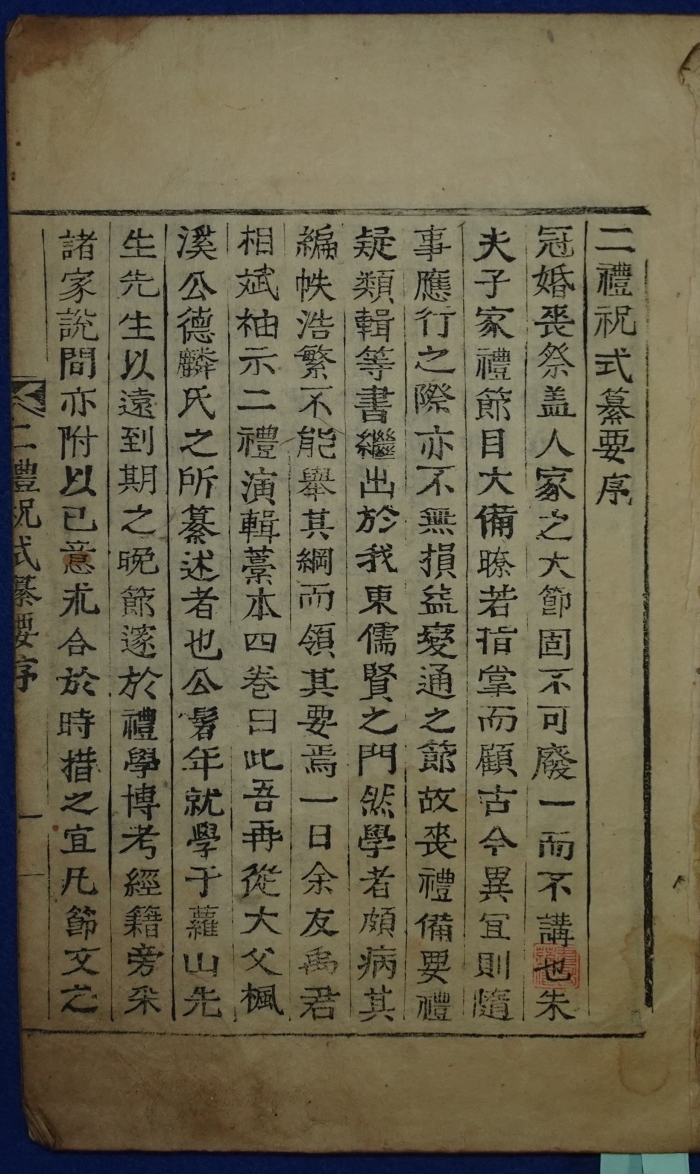 二禮祝式纂要序
冠婚喪祭盖人家之大節固不可廢一而不講也朱
夫子家禮節目大備瞭若指掌而顧古今異宜則隨
事應行之際亦不無損益變通之節故喪禮備要禮
疑類輯等書繼出於我東儒賢之門然學者頗病其
編帙浩繁不能擧其綱而領其要焉一日余友禹君
相斌袖示二禮演輯藁本四卷曰此吾再從大父楓
溪公德麟氏之所纂述者也公髫年就學于蘿山先
生先生以遠到期之晩節邃於禮學博考經籍旁采
諸家說間亦附以已意求合於時措之宜凡節文之
二禮祝式纂要序 一